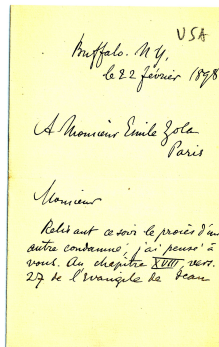 USA
Buffalo. N.Y.
le 22 février 1898
A Monsieur Emile Zola
Paris
Monsieur
Relisant ce soir le procès d'un
autre condamné, j'ai pensé à
vous. Au chapitre XVIII, vers.
27 de l'Evangile de Jean